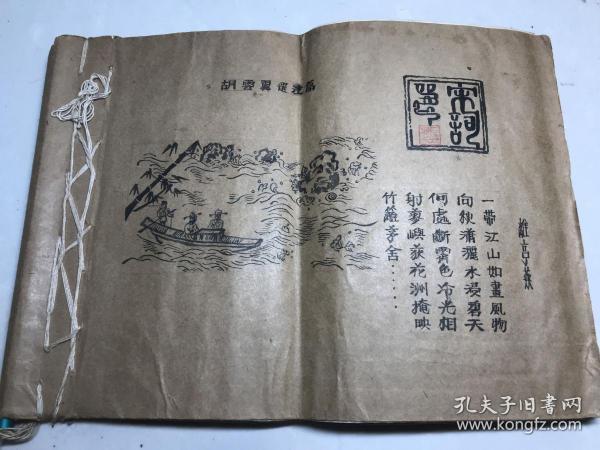 宋詞
離亭燕
一帶江山如畫風物
向秋瀟灑水浸碧天
何處斷霽色冷光相
射蓼嶼荻花洲掩映
竹籬茅舍……
胡雲翼選
孔夫子旧书网
www.kongfz.com